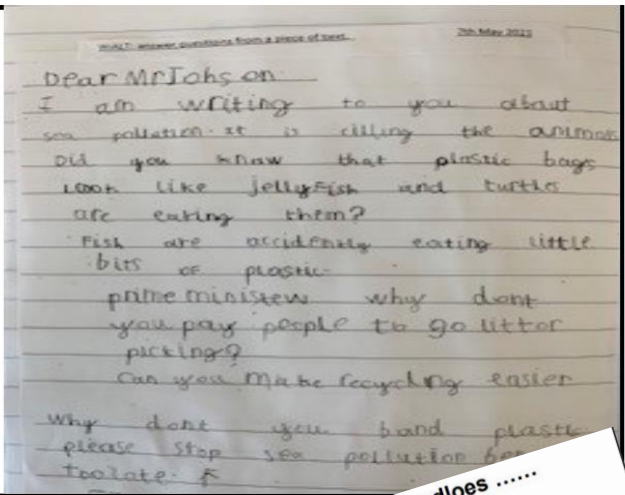 WALT: answer questions from a piece of text.
7th May 2021
Dear Mr Johson
I am writing to you about
sea pollation. It is cilling the animals
Did you know that plastic bags
look like jellyfish and turtles
are eating them?
Fish are accidently eating little
bits of plastic.
prime ministew why dont
you pay people to go littor
picking?
Can you make recycling easier
Why dont you band plastic
please stop sea pollution
toolate.
dloes ......